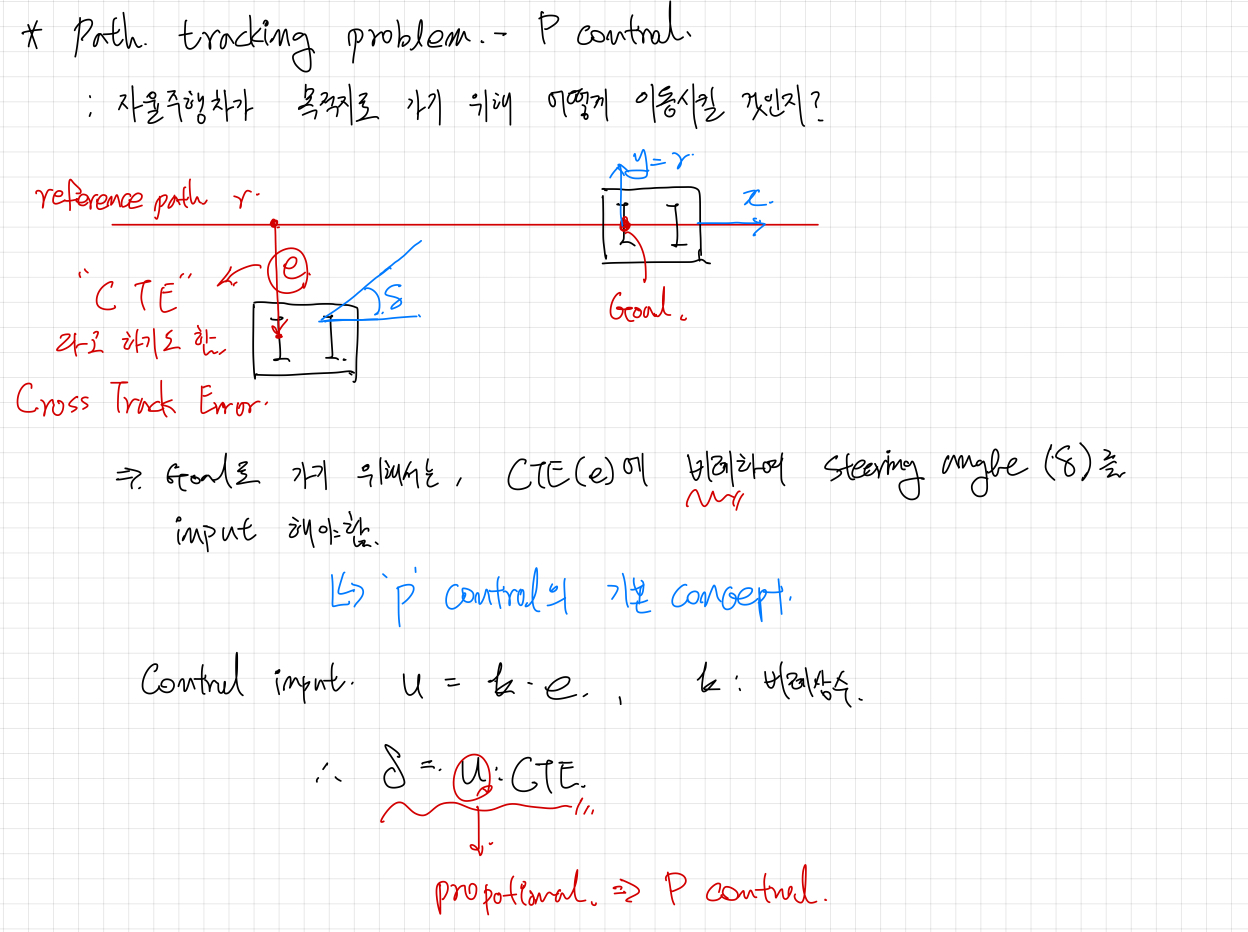 * Path. tracking problem. - P control.
: 자율주행차가 목적지로 가기 위해 어떻게 이동시킬 것인지?
y=r.
reference path r.
x.
e
"CTE"
δ
Goal.
라고 하기도 함.
Cross Track Error.
⇒ Goal로 가기 위해서는, CTE(e)에 비례하여 steering angle (δ)을
input 해야함.
↳ 'P' control의 기본 concept.
Control input. u = k · e. , k : 비례상수.
∴ δ = u : CTE.
propotional. ⇒ P control.